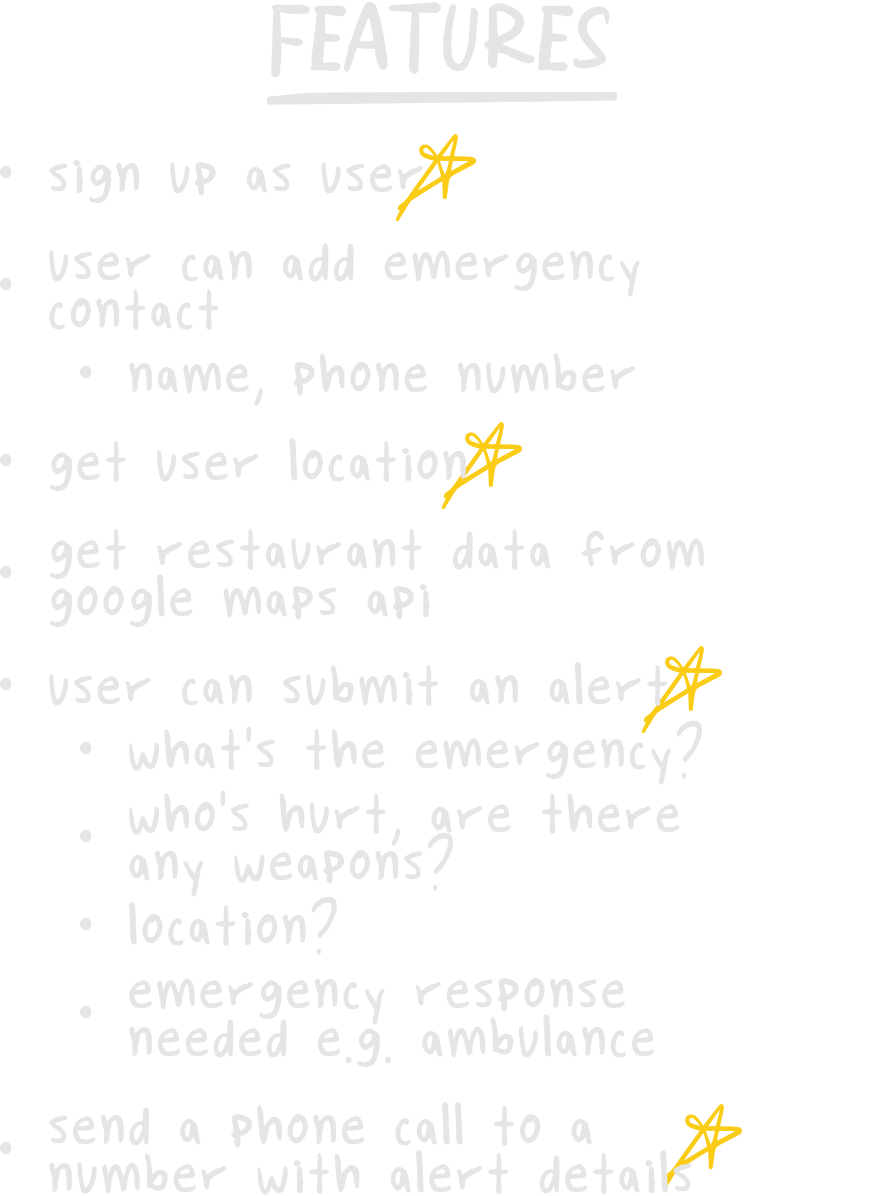 FEATURES
• sign up as user
• user can add emergency
contact
• name, phone number
• get user location
• get restaurant data from
google maps api
• user can submit an alert
• what's the emergency?
• who's hurt, are there
any weapons?
• location?
• emergency response
needed e.g. ambulance
• send a phone call to a
number with alert details